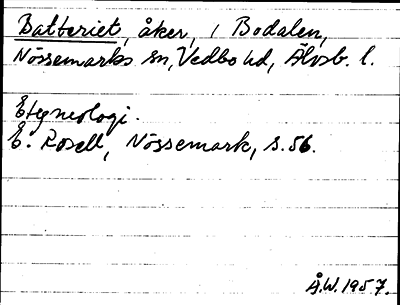 Batteriet, åker, i Bodalen,
Nössemarks sn, Vedbo hd, Älvsb. l.
Etymologi.
E. Rosell, Nössemark, s. 56.
Å.W. 1957.